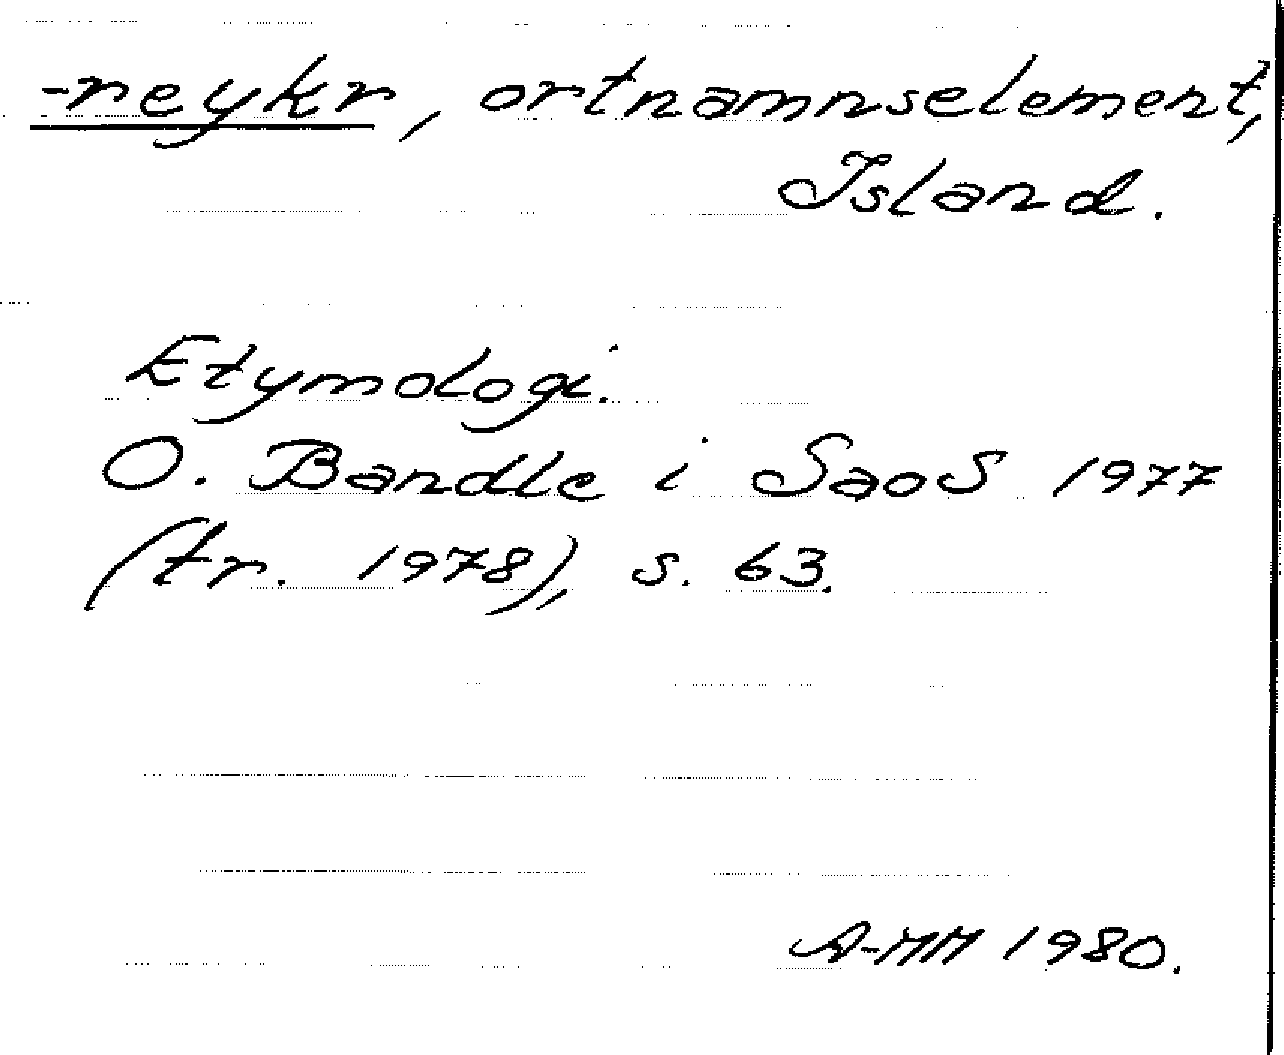 -reykr, ortnamnselement,
Island.
Etymologi.
O. Bandle i SaoS 1977
(tr. 1978), s. 63.
A-MH 1980.